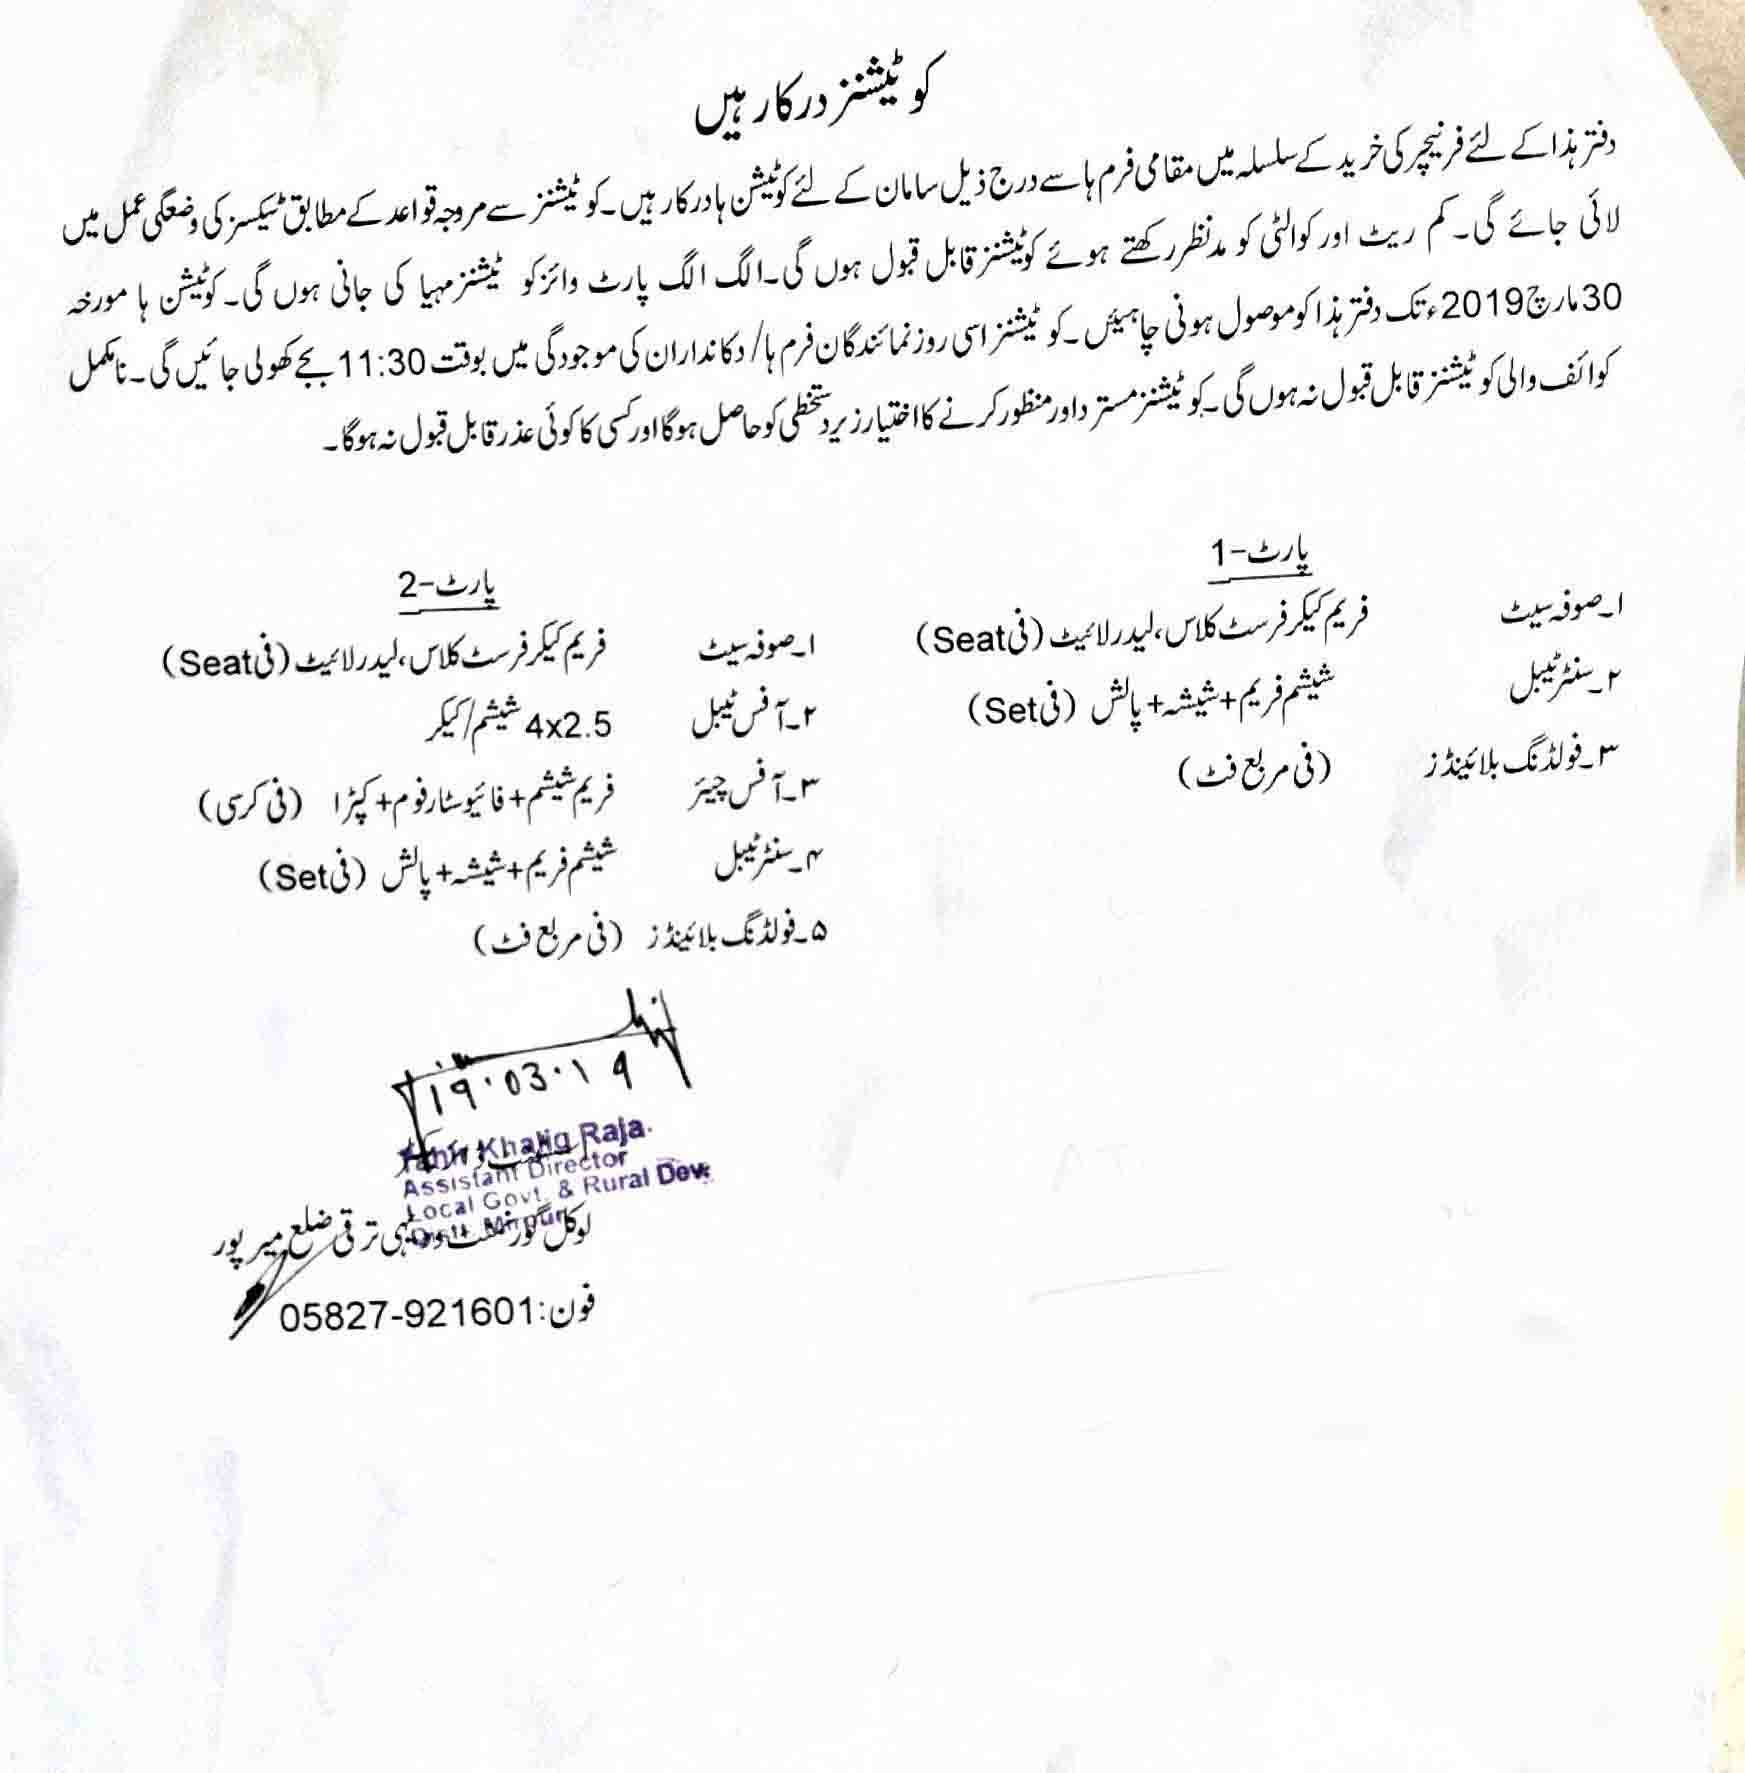 کوٹیشنز درکار ہیں
دفتر ہذا کے لئے فرنیچر کی خرید کے سلسلہ میں مقامی فرم ہا سے درج ذیل سامان کے لئے کوٹیشن ہا درکار ہیں۔ کوٹیشنز سے مروجہ قواعد کے مطابق ٹیکسز کی وضعگی عمل میں
لائی جائے گی۔ کم ریٹ اور کوالٹی کو مدنظر رکھتے ہوئے کوٹیشنز قابل قبول ہوں گی۔ الگ الگ پارٹ وائز کوٹیشنز مہیا کی جانی ہوں گی۔ کوٹیشن ہا مورخہ
30 مارچ 2019ء تک دفتر ہذا کو موصول ہونی چاہیئں۔ کوٹیشنز اسی روز نمائندگان فرم ہا/ دکانداران کی موجودگی میں بوقت 11:30 بجے کھولی جائیں گی۔ نامکمل
کوائف والی کوٹیشنز قابل قبول نہ ہوں گی۔ کوٹیشنز مسترد اور منظور کرنے کا اختیار زیر دستخطی کو حاصل ہوگا اور کسی کا کوئی عذر قابل قبول نہ ہوگا۔
پارٹ-1
۱۔ صوفہ سیٹ فریم کیکر فرسٹ کلاس، لیدر لائیٹ (فی Seat)
۲۔ سنٹر ٹیبل شیشم فریم + شیشہ + پالش (فی Set)
۳۔ فولڈنگ بلائینڈز (فی مربع فٹ)
پارٹ-2
۱۔ صوفہ سیٹ فریم کیکر فرسٹ کلاس، لیدر لائیٹ (فی Seat)
۲۔ آفس ٹیبل 4x2.5 شیشم/کیکر
۳۔ آفس چیئر فریم شیشم + فائیو سٹار فوم + کپڑا (فی کرسی)
۴۔ سنٹر ٹیبل شیشم فریم + شیشہ + پالش (فی Set)
۵۔ فولڈنگ بلائینڈز (فی مربع فٹ)
19.03.19
Khaliq Raja.
Assistant Director
Local Govt. & Rural Dev.
Mirpur
لوکل گورنمنٹ و دیہی ترقی ضلع میرپور
فون: 05827-921601